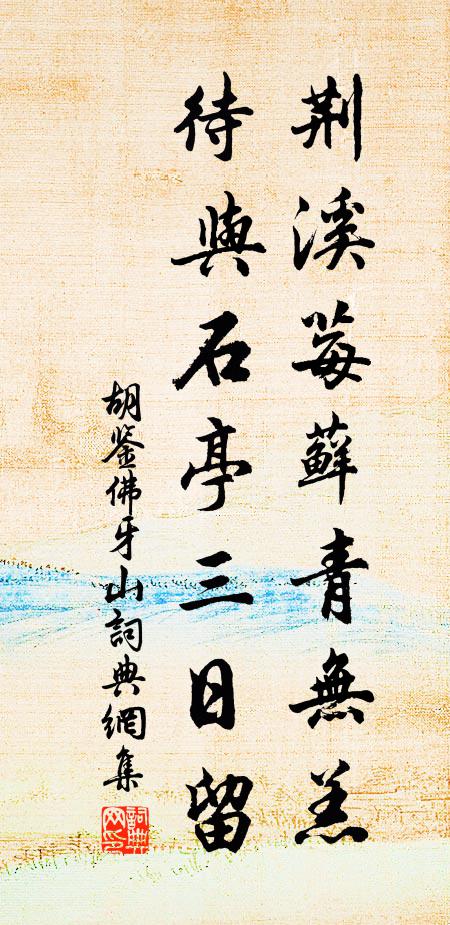 荆溪莓蘚青無恙
待與石亭三日留
胡鉴佛牙山詞典網集
詞典网印